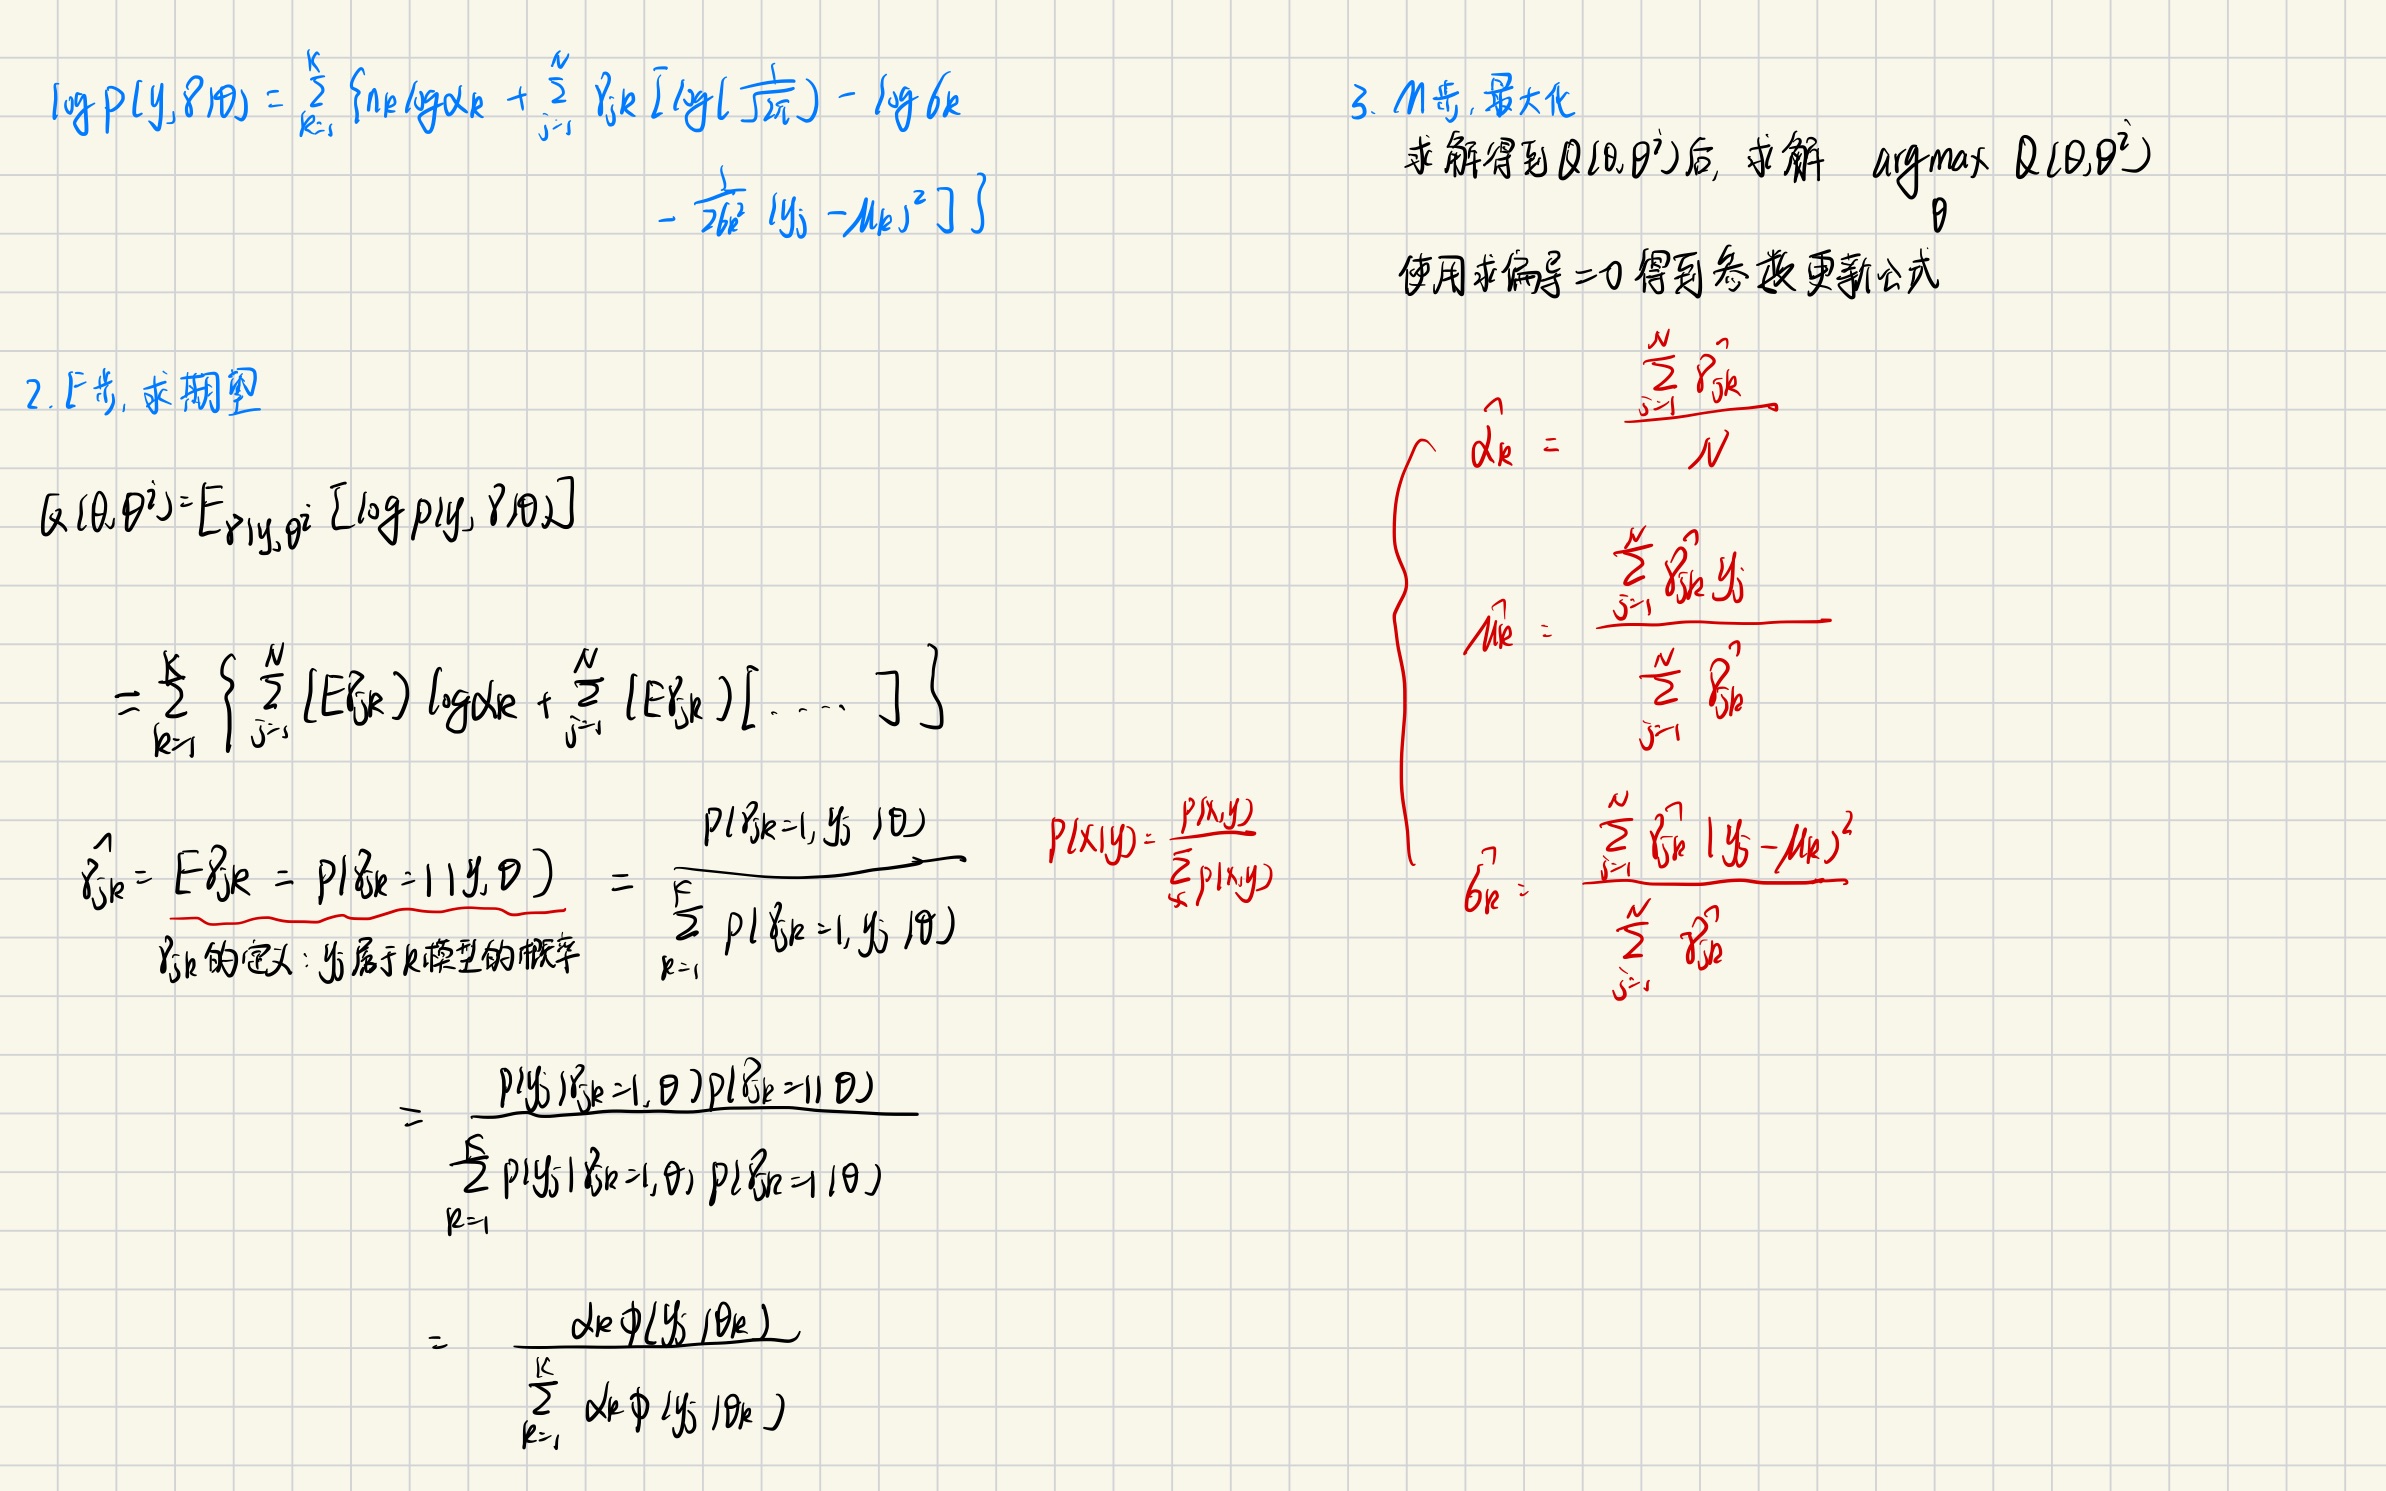 log p(y, γ|θ) = Σ_{k=1}^{K} {n_k log α_k + Σ_{j=1}^{N} γ_jk [log(1/√2π) - log σ_k
- 1/(2σ_k²) (y_j - μ_k)²]}
2. E步, 求期望
Q(θ, θ^i) = E_{γ|y, θ^i} [log p(y, γ|θ)]
= Σ_{k=1}^{K} { Σ_{j=1}^{N} (Eγ_jk) log α_k + Σ_{j=1}^{N} (Eγ_jk) [.....] }
γ̂_jk = Eγ_jk = p(γ_jk = 1 | y, θ) = p(γ_jk = 1, y_j | θ) / Σ_{k=1}^{K} p(γ_jk = 1, y_j | θ)
P(x|y) = P(x,y) / Σ_x p(x,y)
γ_jk 的定义: y_j 属于 k 模型的概率
= p(y_j | γ_jk = 1, θ) p(γ_jk = 1 | θ) / Σ_{k=1}^{K} p(y_j | γ_jk = 1, θ) p(γ_jk = 1 | θ)
= α_k φ(y_j | θ_k) / Σ_{k=1}^{K} α_k φ(y_j | θ_k)
3. M步, 最大化
求解得到 Q(θ, θ^i) 后, 求解 argmax_θ Q(θ, θ^i)
使用求偏导 = 0 得到参数更新公式
α̂_k = Σ_{j=1}^{N} γ̂_jk / N
μ̂_k = Σ_{j=1}^{N} γ̂_jk y_j / Σ_{j=1}^{N} γ̂_jk
σ̂_k = Σ_{j=1}^{N} γ̂_jk (y_j - μ_k)² / Σ_{j=1}^{N} γ̂_jk